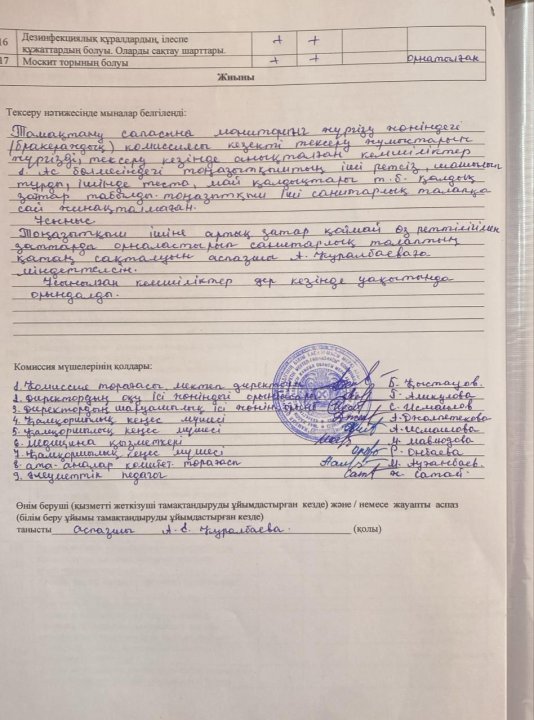 16 Дезинфекциялық құралдардың, ілеспе құжаттардың болуы. Оларды сақтау шарттары. + +
17 Москит торының болуы + + орнатолған
Жиыны
Тексеру нәтижесінде мыналар белгіленді:
Тамақтану сапасына мониторинг жүргізу жөніндегі
(бракераждық) комиссиясы кезекті тексеру жұмыстарын
жүргізді, тексеру кезінде анықталған кемшіліктер
1. Ас бөлмесіндегі тоңазытқыштың іші ретсіз,
тұрды, ішінде теста, май қалдықтары т.б. қалдық
заттар табылды тоңазытқыш іші санитарлық талапқа
сай жинақталмаған.
Ұсыныс
Тоңазытқыш ішіне артық заттар қоймай өз реттілігімен
заттарды орналастырып санитарлық талаптың
қатаң сақталуын аспазшы А. Құралбаеваға
міндеттелсін.
кемшіліктер дер кезінде уақытында
орындалды.
Комиссия мүшелерінің қолдары:
1. Комиссия төрағасы, мектеп директоры Б. Қостауов.
2. Директордың оқу ісі жөніндегі орынбасары Г. Аликулова
3. Директордың шаруашылық ісі жөніндегі С. Исмаилов
4. Қамқоршылық кеңес мүшесі
5. Қамқоршылық кеңес мүшесі А. Исмаилова
6. Медицина қызметкері М. Мавлюдова
7. Қамқоршылық кеңес мүшесі Р. Онбаева
8. ата-аналар комитет төрағасы М. Аузанбаев.
9. Әлеуметтік педагог Сат Ж. Сатай.
Өнім беруші (қызметті жеткізуші тамақтандыруды ұйымдастырған кезде) және / немесе жауапты аспаз
(білім беру ұйымы тамақтандыруды ұйымдастырған кезде)
танысты аспазшы А. Е. Құралбаева. (қолы)